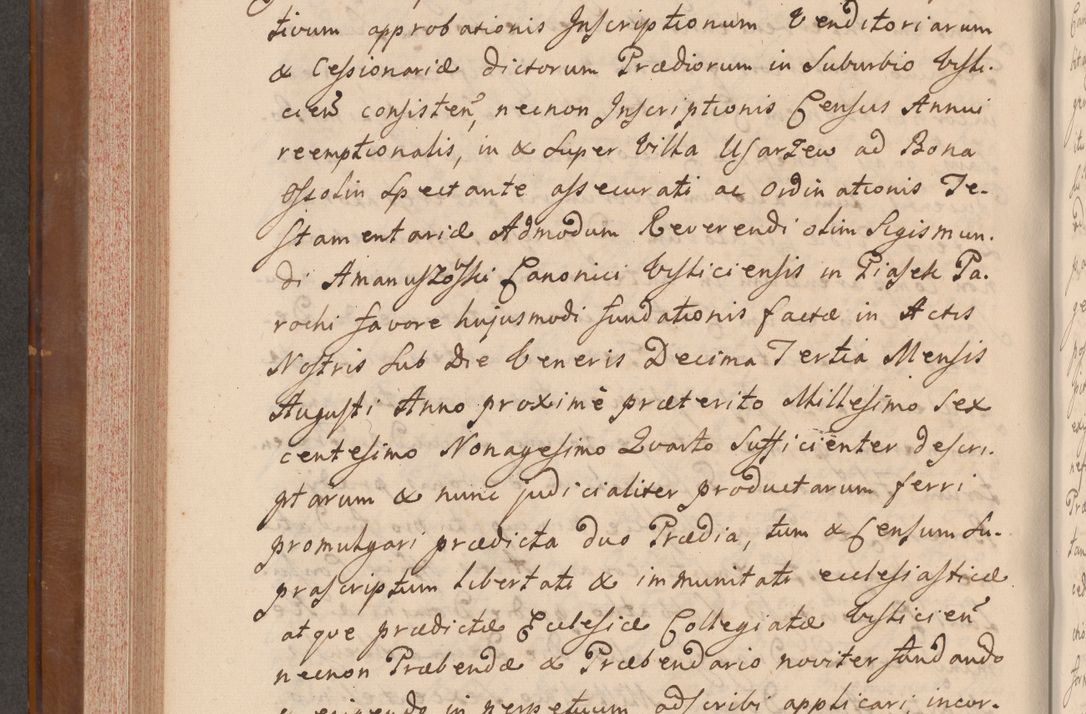 tivum approbationis Inscriptionum Venditoriarum
& Cessionariæ dictorum Prædiorum in Suburbio Visli-
cien̄ consisten̄, necnon Inscriptionis Census Annui
reemptionalis, in & super Villa Usarzew ad Bona
Ossolin spectante assecurati ac Ordinationis Te-
stamentariæ Admodum Reverendi olim Sigismun-
di Amanuszowski Canonici Visliciensis in Piasek Pa-
rochi favore hujusmodi fundationis factæ in Actis
Nostris sub die Veneris Decima Tertia Mensis
Augusti Anno proximè præterito Millesimo Sex
centesimo Nonagesimo Quarto sufficienter descri-
ptarum & nunc judicialiter productarum ferri
promulgari prædicta duo Prædia, tum & Censum su-
prascriptum libertati & immunitati ecclesiasticæ
atque prædictæ Ecclesiæ Collegiatæ Vislicien̄
necnon Præbendæ & Præbendario noviter fundando
& erigendo in perpetuum adscribi applicari, incor-